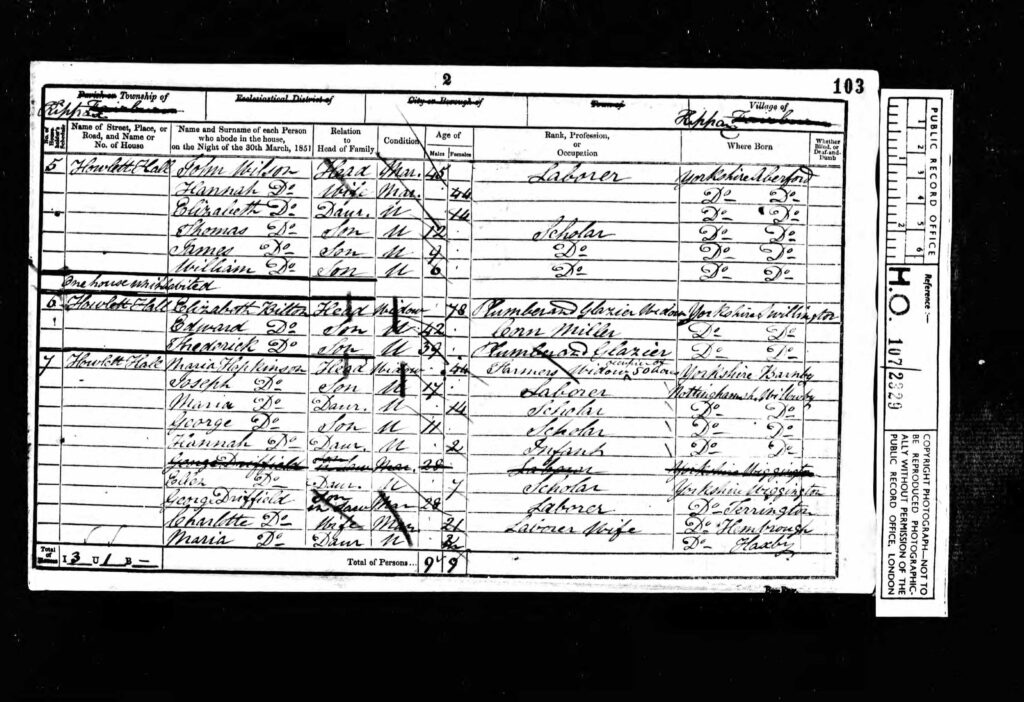 2
103
Parish or Township of
Ecclesiastical District of
City or Borough of
Town of
Village of
Kippax Fairburn
Kippax Fairburn
No. of House-holder's Schedule
Name of Street, Place, or Road, and Name or No. of House
Name and Surname of each Person who abode in the house, on the Night of the 30th March, 1851
Relation to Head of Family
Condition
Age of
Males
Females
Rank, Profession, or Occupation
Where Born
Whether Blind, or Deaf-and-Dumb
5 Howlett Hall John Wilson Head Mar. 45 Laborer Yorkshire Aberford
Hannah Do Wife Mar. 44 Do Do
Elizabeth Do Daur. U 14 Do Do
Thomas Do Son U 12 Scholar Do Do
James Do Son U 9 Do Do Do
William Do Son U 6 Do Do Do
One house uninhabited
6 Howlett Hall Elizabeth Bilton Head Widow 78 Plumber and Glazier Widow Yorkshire Willington
Edward Do Son U 42 Corn Miller Do Do
Frederick Do Son U 39 Plumber and Glazier Do Do
7 Howlett Hall Maria Hopkinson Head Widow 44 Farmers Widow 50 Yorkshire Barnby
Joseph Do Son U 17 Laborer Nottinghamsh.
Maria Do Daur. U 14 Scholar Do Do
George Do Son U 11 Scholar Do Do
Hannah Do Daur U 2 Infant Do Do
George Driffield Mar. 28 Laborer Yorkshire Wiggington
Ellen Do Daur. 7 Scholar Yorkshire Wiggington
George Driffield Son in law Mar 28 Laborer Do Terrington
Charlotte Do Wife Mar 21 Laborer Wife Do Hembrough
Maria Do Daur U Do Haxby
Total of Houses
I 3 U 1 B –
Total of Persons... 9 9
PUBLIC RECORD OFFICE
1 2 3 4 5 6
1 2
Reference:-
H.O. 107/2329
COPYRIGHT PHOTOGRAPH—NOT TO
BE REPRODUCED PHOTOGRAPHIC-
ALLY WITHOUT PERMISSION OF THE
PUBLIC RECORD OFFICE, LONDON